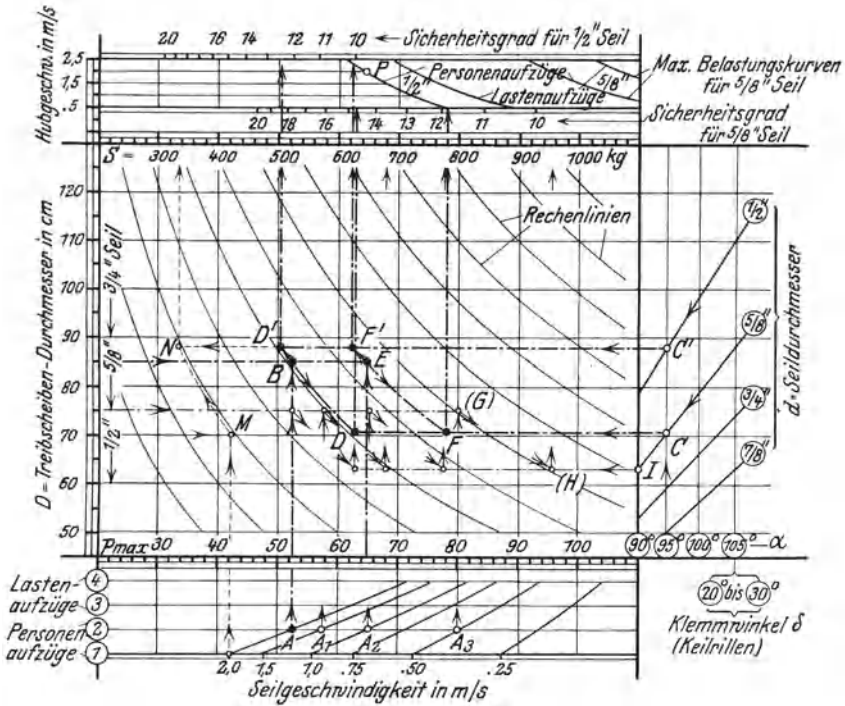 20 16 14 12 11 10 ← Sicherheitsgrad für 1/2" Seil
Hubgeschw. in m/s
2,5
1,5
.5
P
Personenaufzüge
1/2"
Lastenaufzüge
5/8"
Max. Belastungskurven
für 5/8" Seil
20 18 16 14 13 12 11 10
Sicherheitsgrad
für 5/8" Seil
S = 300 400 500 600 700 800 900 1000 kg
D = Treibscheiben-Durchmesser in cm
120
110
100
90
80
70
60
50
3/4" Seil
5/8"
1/2"
Rechenlinien
N
D'
F'
B
E
M
D
F
(G)
(H)
I
C"
C
1/2"
5/8"
3/4"
7/8"
d = Seildurchmesser
Pmax 30 40 50 60 70 80 90 100
90° 95° 100° 105° α
20° bis 30°
Klemmwinkel δ
(Keilrillen)
Lasten-
aufzüge
Personen
aufzüge
4
3
2
1
A A1 A2 A3
2,0 1,5 1,0 .75 .50 .25
Seilgeschwindigkeit in m/s